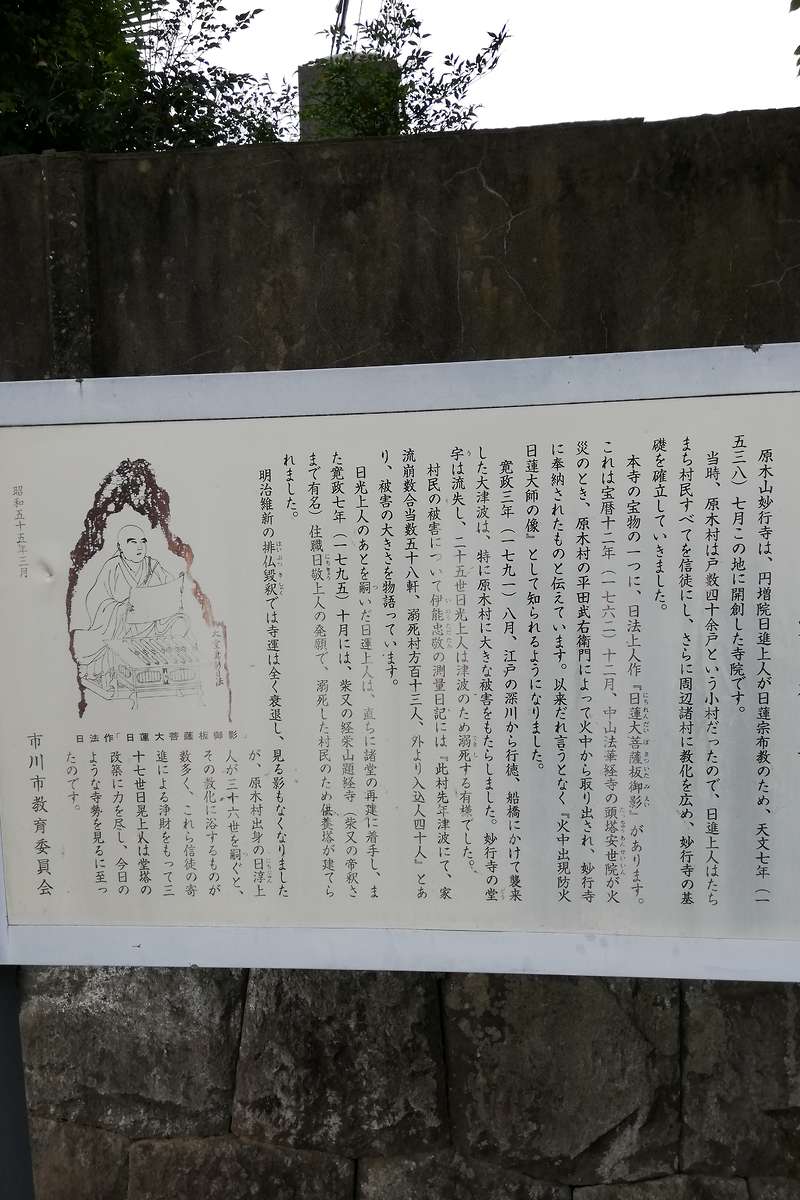 原木山妙行寺は、円増院日進上人が日蓮宗布教のため、天文七年（一
五三八）七月この地に開創した寺院です。
当時、原木村は戸数四十余戸という小村だったので、日進上人はたち
まち村民すべてを信徒にし、さらに周辺諸村に教化を広め、妙行寺の基
礎を確立していきました。
本寺の宝物の一つに、日法上人作『日蓮大菩薩板御影』があります。
これは宝暦十二年（一七六二）十二月、中山法華経寺の頭塔安世院が火
災のとき、原木村の平田武右衛門によって火中から取り出され、妙行寺
に奉納されたものと伝えています。以来だれ言うとなく『火中出現防火
日蓮大師の像』として知られるようになりました。
寛政三年（一七九一）八月、江戸の深川から行徳、船橋にかけて襲来
した大津波は、特に原木村に大きな被害をもたらしました。妙行寺の堂
宇は流失し、二十五世日光上人は津波のため溺死する有様でした。
村民の被害について伊能忠敬の測量日記には『此村先年津波にて、家
流崩数合当数五十八軒、溺死村方百十三人、外より入込人四十人』とあ
り、被害の大きさを物語っています。
日光上人のあとを嗣いだ日運上人は、直ちに諸堂の再建に着手し、ま
た寛政七年（一七九五）十月には、柴又の経栄山題経寺（柴又の帝釈さ
まで有名）住職日敬上人の発願で、溺死した村民のため供養塔が建てら
れました。
明治維新の排仏毀釈では寺運は全く衰退し、見る影もなくなりました
が、原木村出身の日淳上
人が三十六世を嗣ぐと、
その教化に浴するものが
数多く、これら信徒の寄
進による浄財をもって三
十七世日晃上人は堂塔の
改築に力を尽し、今日の
ような寺勢を見るに至っ
たのです。
日法作「日蓮大菩薩板御影」
昭和五十五年三月
市川市教育委員会